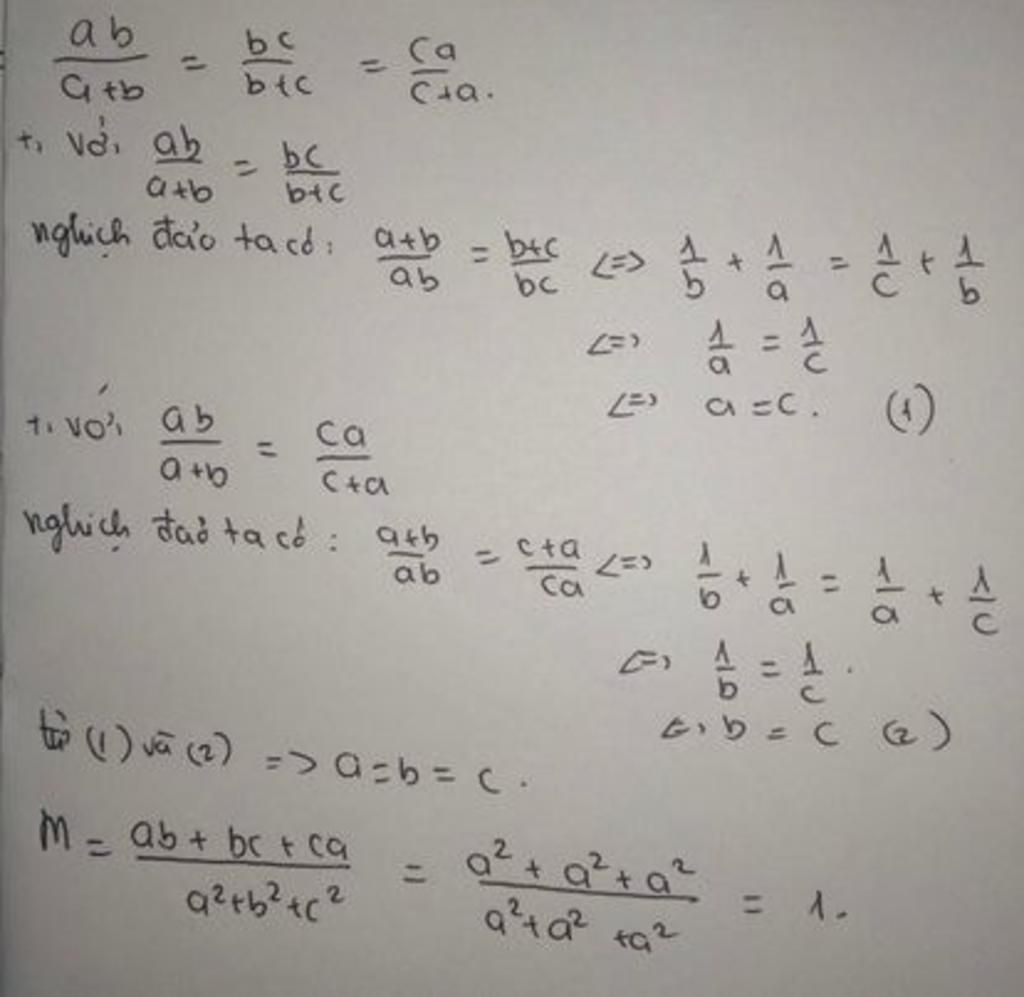 ab/a+b = bc/b+c = ca/c+a.
+, với ab/a+b = bc/b+c
nghịch đảo ta có: a+b/ab = b+c/bc <=> 1/b + 1/a = 1/c + 1/b
<=> 1/a = 1/c
<=> a = c. (1)
+, với ab/a+b = ca/c+a
nghịch đảo ta có: a+b/ab = c+a/ca <=> 1/b + 1/a = 1/a + 1/c
<=> 1/b = 1/c.
<=> b = c (2)
từ (1) và (2) => a = b = c.
M = ab + bc + ca/a²+b²+c² = a² + a² + a²/a²+a²+a² = 1.